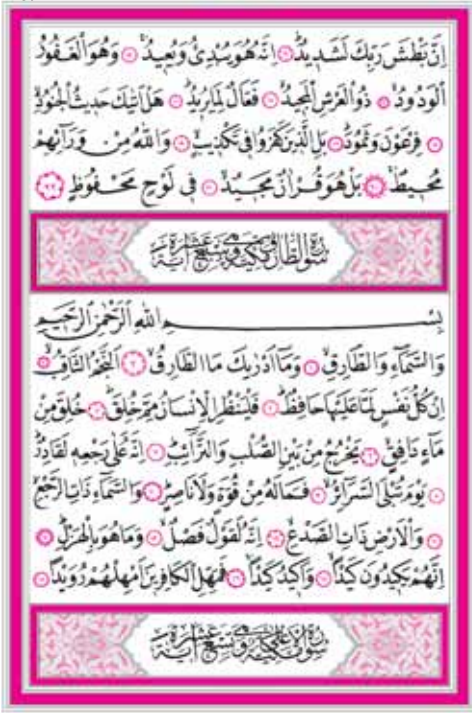 اِنَّ بَطْشَ رَبِّكَ لَشَدٖيدٌ ۝ اِنَّهُ هُوَ يُبْدِئُ وَيُعٖيدُ ۝ وَهُوَ الْغَفُورُ
الْوَدُودُ ۝ ذُو الْعَرْشِ الْمَجٖيدُ ۝ فَعَّالٌ لِمَا يُرٖيدُ ۝ هَلْ اَتٰيكَ حَدٖيثُ الْجُنُودِ
۝ فِرْعَوْنَ وَثَمُودَ ۝ بَلِ الَّذٖينَ كَفَرُوا فٖى تَكْذٖيبٍ ۝ وَاللّٰهُ مِنْ وَرَٓائِهِمْ
مُحٖيطٌ ۝ بَلْ هُوَ قُرْاٰنٌ مَجٖيدٌ ۝ فٖى لَوْحٍ مَحْفُوظٍ ۝
سُورَةُ الطَّارِقِ مَكِّيَّةٌ وَهِيَ سَبْعَ عَشْرَةَ اٰيَةً
بِسْمِ اللّٰهِ الرَّحْمٰنِ الرَّحٖيمِ
وَالسَّمَٓاءِ وَالطَّارِقِ ۝ وَمَٓا اَدْرٰيكَ مَا الطَّارِقُ ۝ اَلنَّجْمُ الثَّاقِبُ ۝
اِنْ كُلُّ نَفْسٍ لَمَّا عَلَيْهَا حَافِظٌ ۝ فَلْيَنْظُرِ الْاِنْسَانُ مِمَّ خُلِقَ ۝ خُلِقَ مِنْ
مَٓاءٍ دَافِقٍ ۝ يَخْرُجُ مِنْ بَيْنِ الصُّلْبِ وَالتَّرَٓائِبِ ۝ اِنَّهُ عَلٰى رَجْعِهٖ لَقَادِرٌ
۝ يَوْمَ تُبْلَى السَّرَٓائِرُ ۝ فَمَا لَهُ مِنْ قُوَّةٍ وَلَا نَاصِرٍ ۝ وَالسَّمَٓاءِ ذَاتِ الرَّجْعِ
۝ وَالْاَرْضِ ذَاتِ الصَّدْعِ ۝ اِنَّهُ لَقَوْلٌ فَصْلٌ ۝ وَمَا هُوَ بِالْهَزْلِ ۝
اِنَّهُمْ يَكٖيدُونَ كَيْدًا ۝ وَاَكٖيدُ كَيْدًا ۝ فَمَهِّلِ الْكَافِرٖينَ اَمْهِلْهُمْ رُوَيْدًا ۝
سُورَةُ الْاَعْلٰى مَكِّيَّةٌ وَهِيَ تِسْعَ عَشْرَةَ اٰيَةً